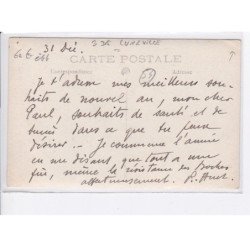 31 Déc. 336 LUNEVILLE
CARTE POSTALE
Correspondance Adresse
Je t'adresse mes meilleurs sou-
haits de nouvel an, mon cher
Paul, souhaits de santé et de
succès dans ce que tu peux
désirer. Je commence l'année
en me disant, que tout a une
fin, même la résistance des Boches
affectueusement. P. Huet